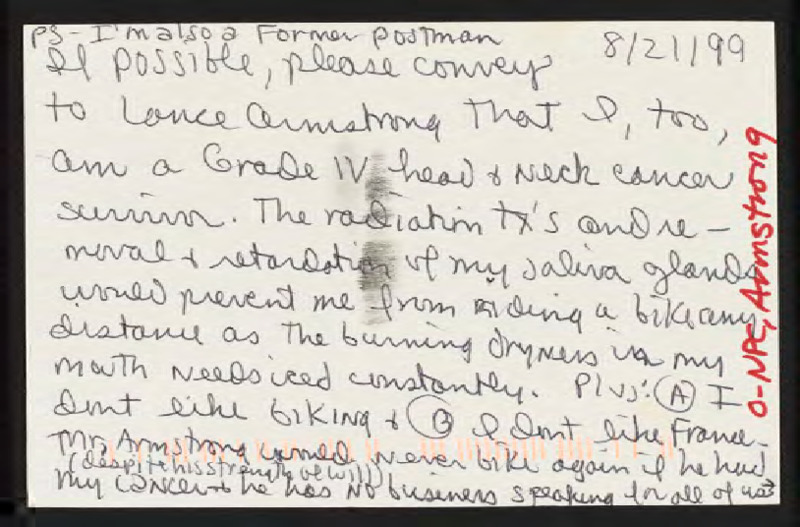 PS - I'm also a Former postman
8/21/99
If possible, please convey
to Lance Armstrong that I, too,
am a Grade IV head & neck cancer
survivor. The radiation tx's and re-
moval & retardation of my saliva glands
would prevent me from riding a bike any
distance as the burning dryness in my
mouth needs iced constantly. Plus: (A) I
dont like biking & (B) I dont like France.
Mr. Armstrong would never bike again if he had
(despite his strength of will)
my cancer & he has NO business speaking for all of us
O-NPC, Armstrong